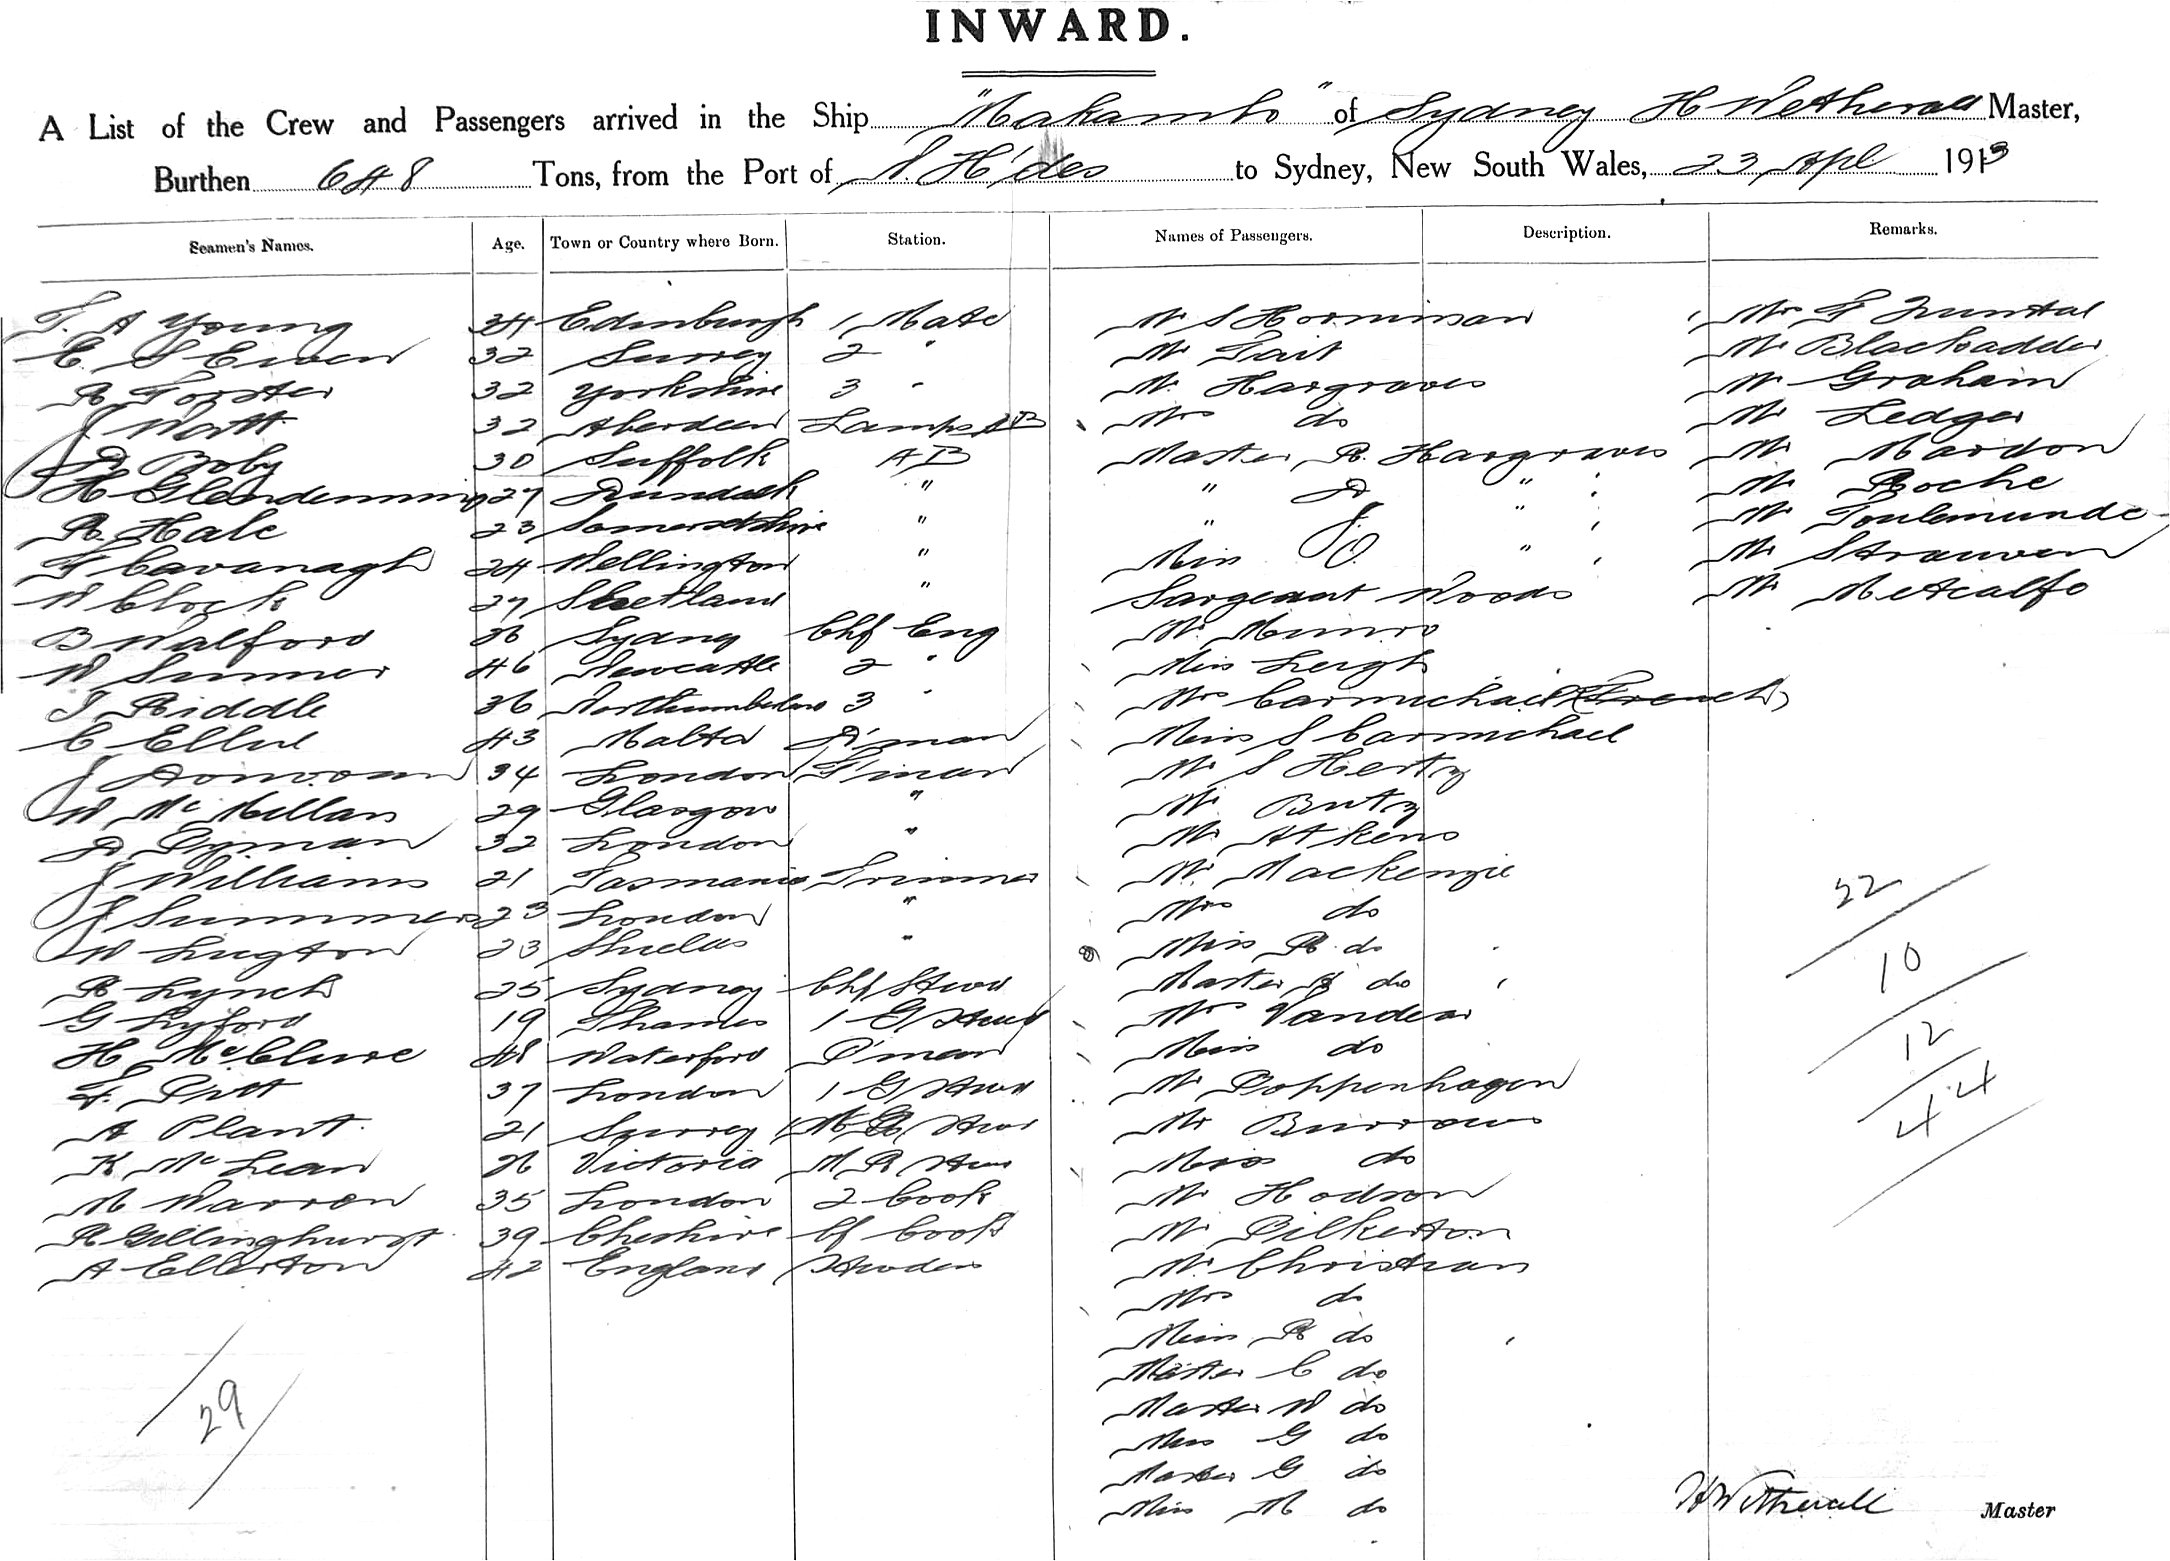 INWARD.
A List of the Crew and Passengers arrived in the Ship "Makambo" of Sydney H Wetherall Master,
Burthen 648 Tons, from the Port of N. H'des to Sydney, New South Wales, 23 Apl 1913
Seamen's Names. Age. Town or Country where Born. Station. Names of Passengers. Description. Remarks.
T. A Young 34 Edinburgh 1 Mate Mr S Horniman Mr F
E. S Ewen 32 Surrey 2 " Mr Tait Mr Blackadder
R Forster 32 Yorkshire 3 " Mr Hargraves Mr Graham
J Watt 32 Aberdeen Lamps AB Mrs do Mr Ledger
A Boby 30 Suffolk AB Master R. Hargraves Mr Mardon
H Glendenning 27 Dundalk " " A " Mr Roche
R Hale 23 Somersetshire " " J. " Mr Toulemunde
F Cavanagh 24 Wellington " Miss O. " Mr Strauven
W Clock 27 Shetland " Sargeant Woods Mr Metcalfe
B Walford 26 Sydney Chf Eng Mr Munro
W Sumner 46 Newcastle 2 " Miss Leigh
J Riddle 36 Northumberland 3 " Mrs Carmichael (French)
C Ellul 43 Malta D'man Miss S Carmichael
J Donovan 34 London F'man Mr S Hertz
W McMillan 29 Glasgow " Mr Butz
A Dyman 32 London " Mr Atkens
J Williams 21 Tasmania Trimmer Mr. Mackenzie
J Summers 23 London " Mrs do
W Lugton 23 Shields " Miss R. do
R Lynch 25 Sydney Chf Stwd Master do
G Lyford 19 Thames 1 G Stwd Mrs Vandear
H McClure 48 Waterford P'man Miss do
F. Pitt 37 London 1 G Stwd Mr Poppenhagen
A Plant. 21 Surrey Stwd Mr Burrows
K McLean 26 Victoria M R Stwd Miss do
M Warren 35 London 2 Cook Mr Hodson
R Gillinghurst 39 Cheshire Cf Cook Mr Pilkerton
A Ellerton 42 England Stwdess Mr. Christian
Mrs do
Miss R do
Master C do
Master W do
Miss G do
Master G do
Miss M do
22
10
12
4
4
29
H Wetherall Master